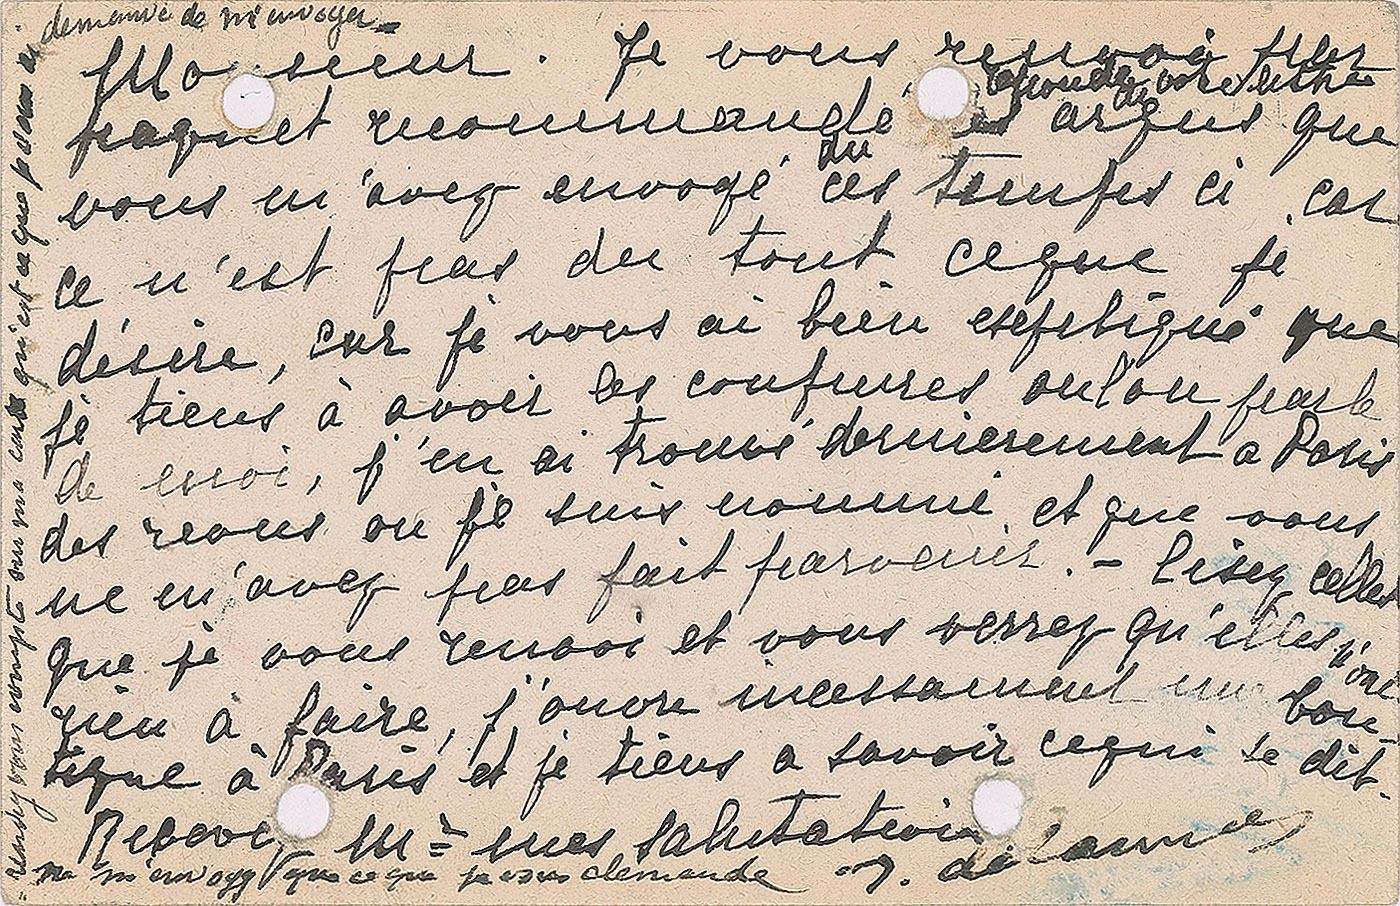 Monsieur. Je vous renvoi par
paquet recommandé les argus que
vous m'avez envoyé ces temps ci, car
du
ce n'est pas du tout ceque je
désire, car je vous ai bien expliqué que
je tiens à avoir les coupures ou l'on parle
de moi, j'en ai trouvé dernierement a Paris
des revues ou je suis nommé, et que vous
ne m'avez pas fait parvenir. - Lisez celles
que je vous renvoi et vous verrez qu'elles n'ont
rien à faire, j'ouvre incessament une bou-
tique à Paris et je tiens a savoir cequi se dit.
Recevez Mr= mes salutations
J. Delaunes
= Rendez vous compte sur ma carte qu'est ce que je vous ai
demandé de m'envoyer -
ne m'envoyez que ce que je vous demande